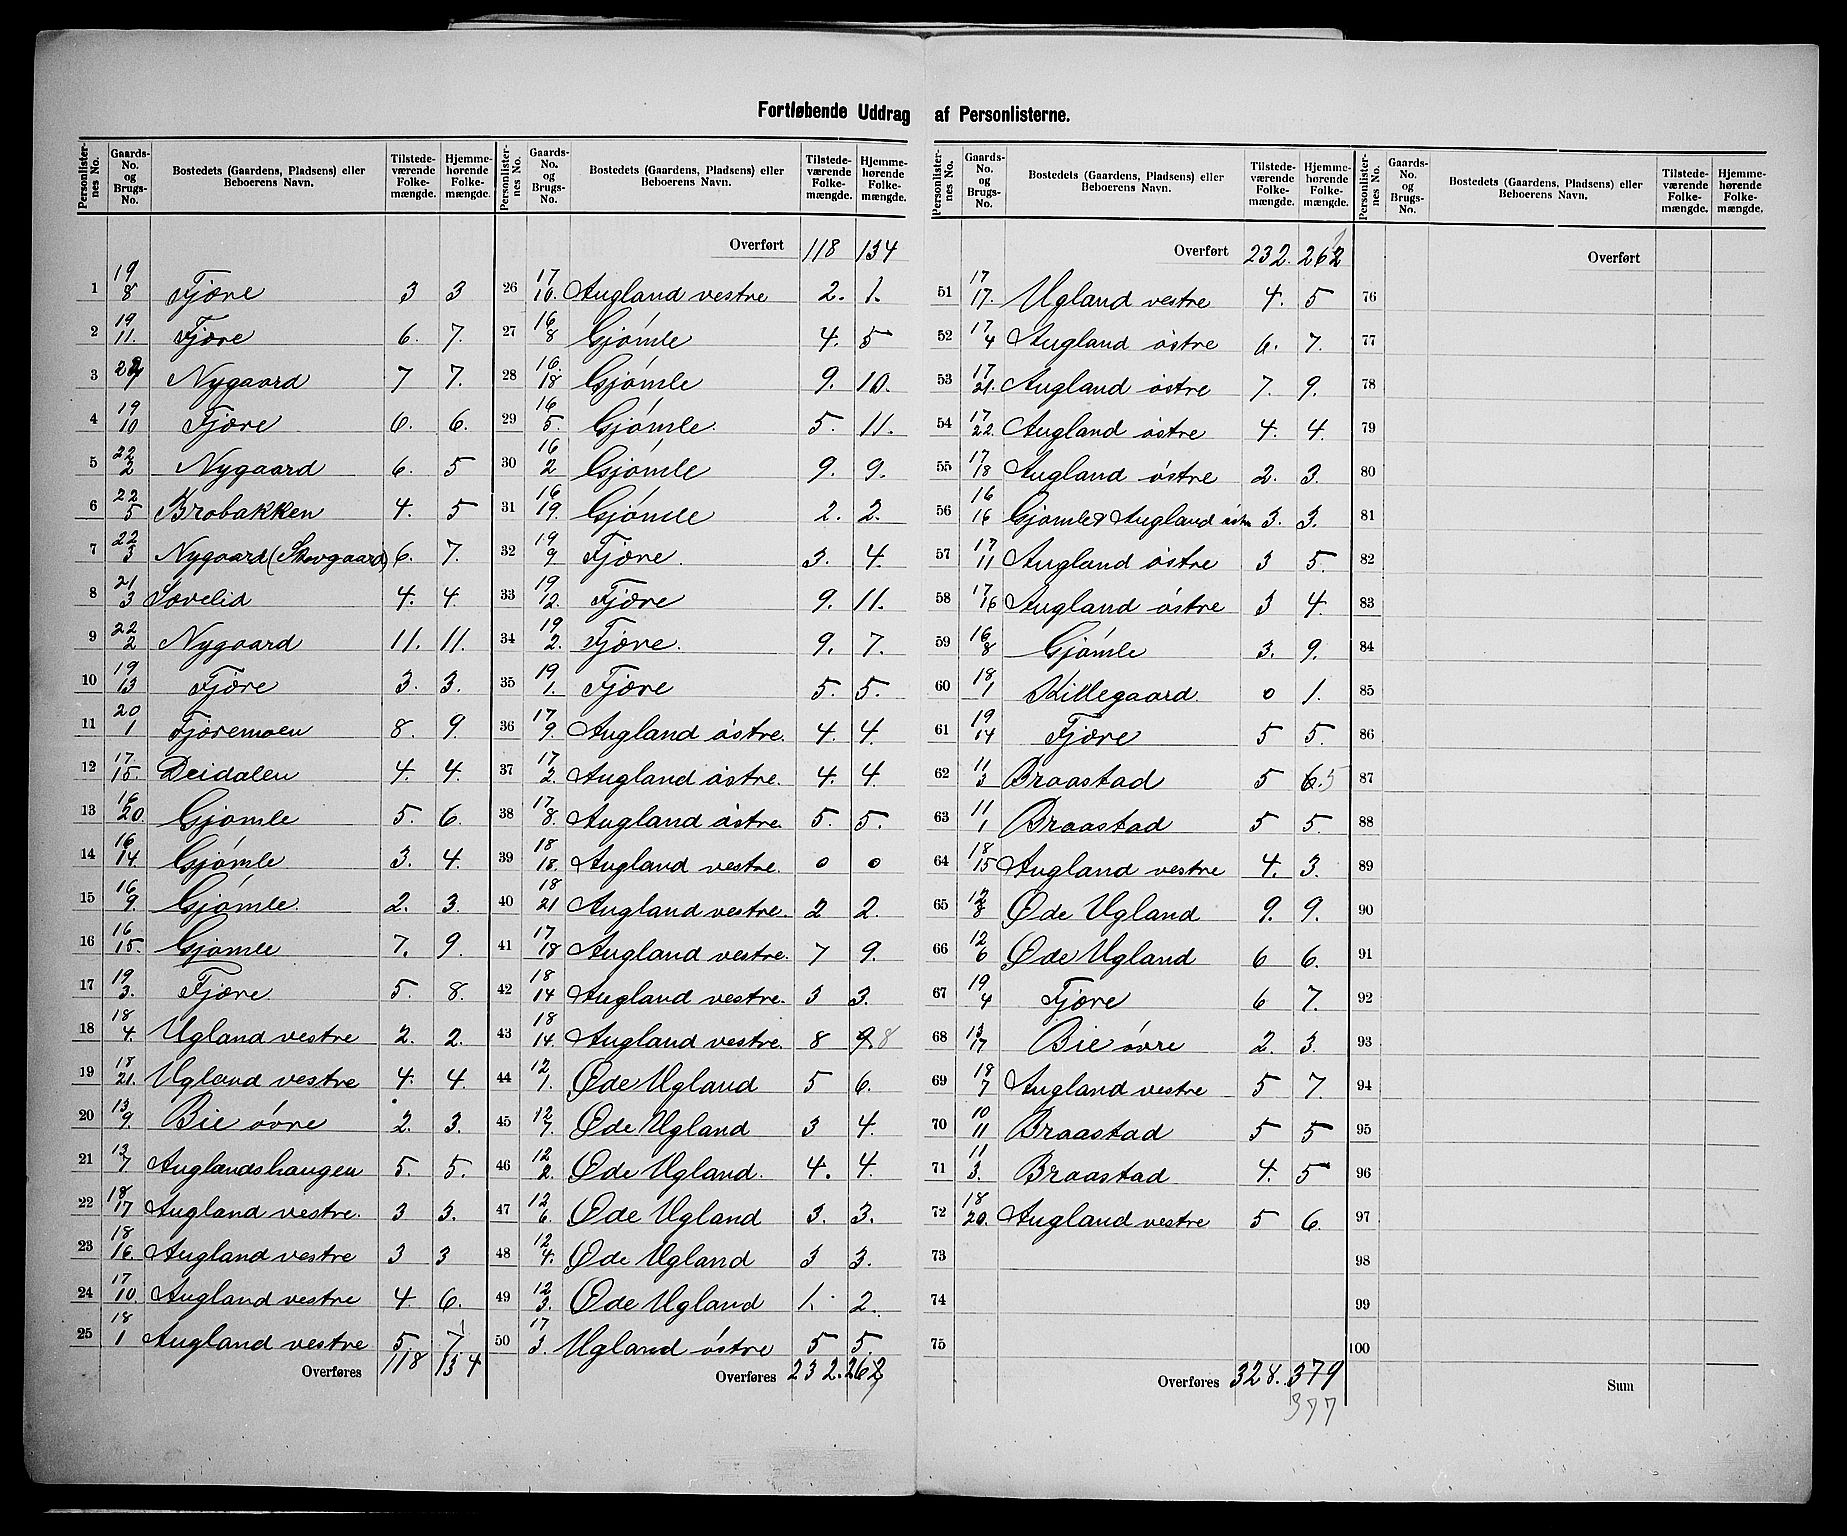 Fortløbende Uddrag af Personlisterne.
Personlisternes No. | Gaards-No. og Brugs-No. | Bostedets (Gaardens, Pladsens) eller Beboerens Navn. | Tilstedeværende Folkemængde. | Hjemmehørende Folkemængde.
1 | 19/8 | Fjære | 3 | 3
2 | 19/11. | Fjære | 6. | 7.
3 | Nygaard | 7 | 7.
4 | 19/10 | Fjære | 6. | 6.
5 | 22/2 | Nygaard | 6. | 5
6 | 22/5 | Brobakken | 4. | 5
7 | 22/3 | Nygaard (Skovgaard) | 6. | 7.
8 | 21/3 | Søvelid | 4. | 4.
9 | 22/2 | Nygaard | 11. | 11.
10 | 19/13 | Fjære | 3. | 3.
11 | 20/1 | Fjæremoen | 8. | 9.
12 | 17/15. | Deidalen | 4. | 4.
13 | 16/20. | Gjømle | 5. | 6.
14 | 16/14. | Gjømle | 3. | 4.
15 | 16/9. | Gjømle. | 2. | 3.
16 | 16/15. | Gjømle | 7. | 9.
17 | 19/3. | Fjære. | 5. | 8.
18 | 18/4. | Ugland vestre | 2. | 2.
19 | 18/21. | Ugland vestre | 4. | 4.
20 | 13/9. | Bie øvre | 2. | 3.
21 | 13/7 | Auglandshaugen | 5. | 5.
22 | 18/17 | Augland vestre. | 3 | 3.
23 | 18/16. | Augland vestre | 3 | 3
24 | 17/10. | Augland vestre | 4. | 6.
25 | 18/1 | Augland vestre | 5. | 7
Overføres 118 134
Personlisternes No. | Gaards-No. og Brugs-No. | Bostedets (Gaardens, Pladsens) eller Beboerens Navn. | Tilstedeværende Folkemængde. | Hjemmehørende Folkemængde.
Overført 118 134
26 | 17/10. | Augland vestre | 2. | 1.
27 | 16/8 | Gjømle | 4. | 5
28 | 16./18 | Gjømle | 9. | 10.
29 | 16/5. | Gjømle. | 5. | 11.
30 | 16/2 | Gjømle | 9. | 9.
31 | 16/19. | Gjømle | 2. | 2.
32 | 19/9 | Fjære. | 3. | 4.
33 | 19/12. | Fjære | 9. | 11.
34 | 19/2. | Fjære. | 9. | 7.
35 | 19/1. | Fjære | 5. | 5.
36 | 17/9. | Augland østre. | 4. | 4.
37 | 17/2. | Augland østre. | 4. | 4.
38 | 17/8. | Augland østre. | 5. | 5.
39 | 18/18. | Augland vestre. | 0 | 0
40 | 18/21 | Augland vestre. | 2 | 2.
41 | 17/18 | Augland vestre. | 7 | 9.
42 | 18/14 | Augland vestre. | 3 | 3.
43 | 18/14. | Augland vestre. | 8 | 9. 8
44 | 12/1. | Øde Ugland | 5 | 6.
45 | 12/7. | Øde Ugland | 3 | 4.
46 | 12/2. | Øde Ugland. | 4. | 4.
47 | 12/6. | Øde Ugland | 3. | 3.
48 | 12/4. | Øde Ugland | 3 | 3.
49 | 12/3. | Øde Ugland | 1. | 2.
50 | 17/3. | Ugland østre | 5 | 5.
Overføres 232. 262
Personlisternes No. | Gaards-No. og Brugs-No. | Bostedets (Gaardens, Pladsens) eller Beboerens Navn. | Tilstedeværende Folkemængde. | Hjemmehørende Folkemængde.
Overført 232. 262
51 | 17/17. | Ugland vestre | 4. | 5
52 | 17/4 | Augland østre | 6. | 7.
53 | 17/21. | Augland østre | 7. | 9.
54 | 17/22. | Augland østre | 4. | 4.
55 | 17/18 | Augland østre | 2. | 3.
56 | 16/16 | Gjømle & Augland østre | 3. | 3.
57 | 17/11 | Augland østre | 3 | 5.
58 | 17/16 | Augland østre | 3 | 4.
59 | 16/8 | Gjømle | 3. | 9.
60 | 18/1 | Killegaard. | 0 | 1.
61 | 19/14 | Fjære | 5 | 5.
62 | 11/3 | Braastad | 5 | 6. 5
63 | 11/1 | Braastad | 5 | 5.
64 | 18/15 | Augland vestre | 4. | 3.
65 | 12/8 | Øde Ugland | 9. | 9.
66 | 12/6 | Øde Ugland | 6 | 6.
67 | 19/4 | Fjære | 6 | 7.
68 | 13/17 | Bie øvre | 2. | 3.
69 | 18/7 | Augland vestre | 5 | 7.
70 | 10/11 | Braastad | 5 | 5
71 | 11/3. | Braastad | 4. | 5
72 | 18/20. | Augland vestre | 5 | 6.
73
74
75
Overføres 328. 379
377
Personlisternes No. | Gaards-No. og Brugs-No. | Bostedets (Gaardens, Pladsens) eller Beboerens Navn. | Tilstedeværende Folkemængde. | Hjemmehørende Folkemængde.
Overført
76
77
78
79
80
81
82
83
84
85
86
87
88
89
90
91
92
93
94
95
96
97
98
99
100
Sum